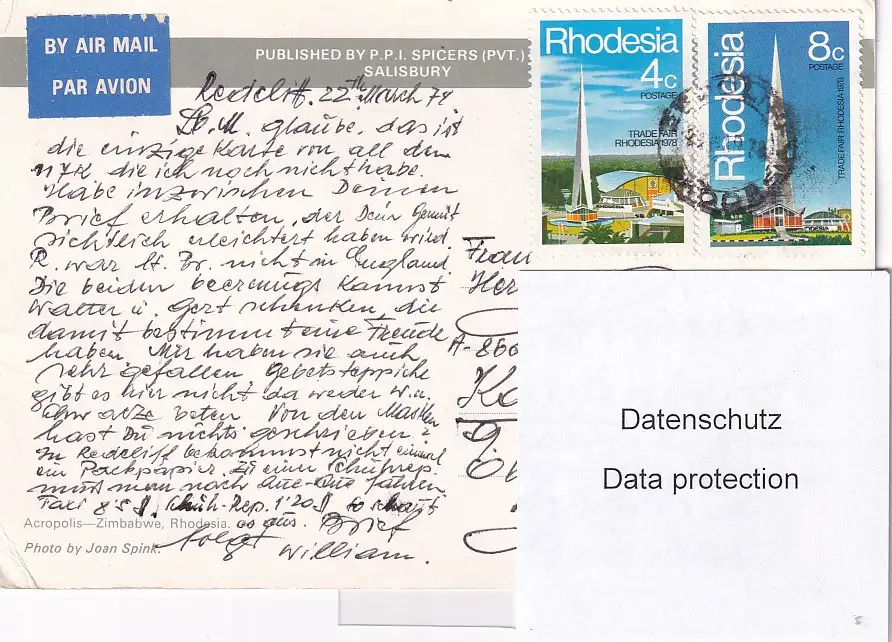 BY AIR MAIL
PAR AVION
PUBLISHED BY P.P.I. SPICERS (PVT.)
SALISBURY
Rhodesia
4c
POSTAGE
TRADE FAIR
RHODESIA 1978
Rhodesia
8c
POSTAGE
TRADE FAIR RHODESIA 1978
Redcliff. 22th March 79
L. M. glaube, das ist
die einzige Karte von all dem
die ich noch nicht habe.
Habe inzwischen Deinen
Brief erhalten, der Dein Gemüt
sichtlich erleichtert haben wird.
R. war lt. Br. nicht in England.
Die beiden kannst
Walter u. Gert schenken, die
damit bestimmt eine Freude
haben. Mir haben sie auch
sehr gefallen Gebetsteppiche
gibt es hier nicht da weder W. u.
Schwarze beten Von den Masken
hast Du nichts geschrieben?
In Redcliff bekommst nicht einmal
ein Packpapier. Zu einer Schuhrep.
muss man nach Que-Que fahren
Taxi 8'5 $, Schuh-Rep. 1'20 $ so schaut
es aus. Brief
folgt William.
Acropolis—Zimbabwe, Rhodesia.
Photo by Joan Spink.
Frau
Her
A-860
Ka
Datenschutz
Data protection